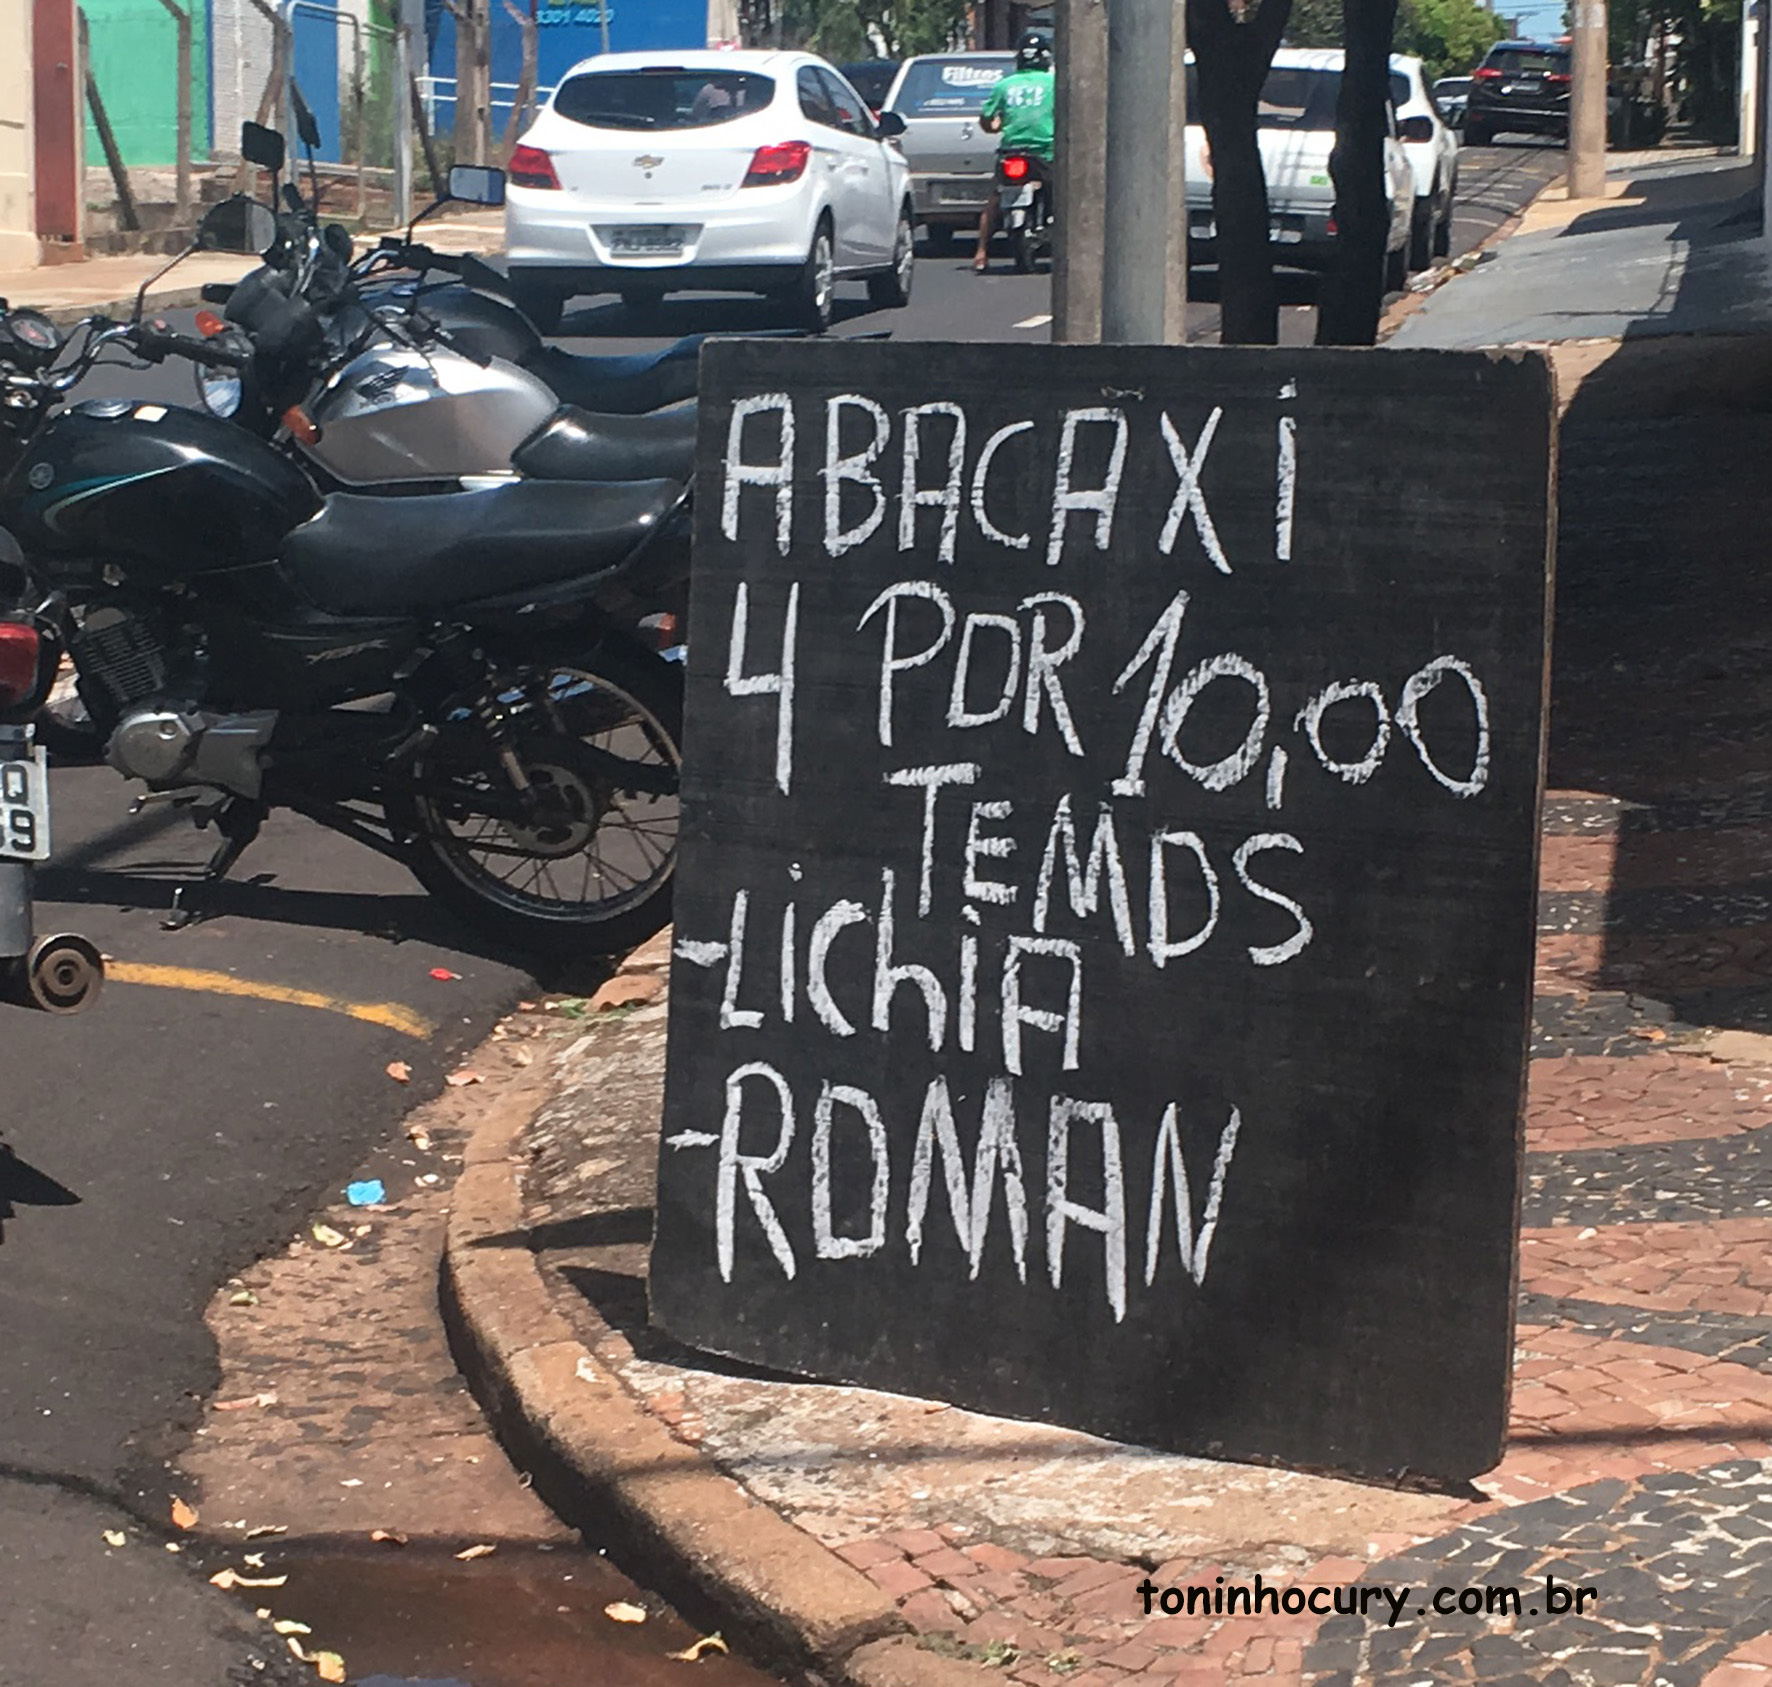 3301 4020
Filtros
ABACAXI
4 POR 10,00
TEMOS
-LICHIA
-ROMAN
Q
69
toninhocury.com.br